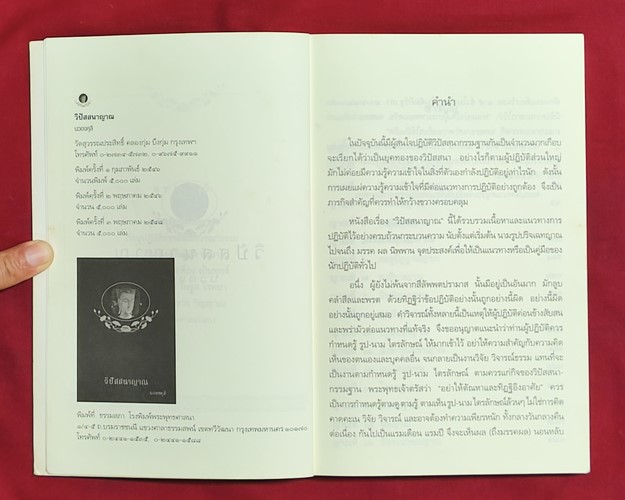 วิปัสสนาญาณ
แวดดุสิ
วัดสุวรรณประสิทธิ์ คลองกุ่ม บึงกุ่ม กรุงเทพฯ
พิมพ์ครั้งที่ ๑ กุมภาพันธ์ ๒๕๔๖
จำนวนพิมพ์ ๕,๐๐๐ เล่ม
พิมพ์ครั้งที่ ๒ พฤษภาคม ๒๕๔๖
จำนวน ๕,๐๐๐ เล่ม
พิมพ์ครั้งที่ ๓ พฤษภาคม ๒๕๔๘
จำนวน ๕,๐๐๐ เล่ม
วิปัสสนาญาณ
พิมพ์ที่ ธรรมสภา โรงพิมพ์พระพุทธศาสนา
๑/๔-๕ ถ.บรมราชชนนี แขวงศาลาธรรมสพน์ เขตทวีวัฒนา กรุงเทพมหานคร ๑๐๑๗๐
คำนำ
ในปัจจุบันนี้มีผู้สนใจปฏิบัติวิปัสสนากรรมฐานกันเป็นจำนวนมากเกือบ
จะเรียกได้ว่าเป็นยุคทองของวิปัสสนา อย่างไรก็ตามผู้ปฏิบัติส่วนใหญ่
มักไม่ค่อยมีความรู้ความเข้าใจในสิ่งที่ตัวเองกำลังปฏิบัติอยู่เท่าไรนัก ดังนั้น
การเผยแผ่ความรู้ความเข้าใจที่มีต่อแนวทางการปฏิบัติอย่างถูกต้อง จึงเป็น
ภารกิจสำคัญที่ควรทำให้กว้างขวางครอบคลุม
หนังสือเรื่อง "วิปัสสนาญาณ" นี้ได้รวบรวมเนื้อหาและแนวทางการ
ปฏิบัติไว้อย่างครบถ้วนกระบวนความ นับตั้งแต่เริ่มต้น นามรูปปริจเฉทญาณ
ไปจนถึง มรรค ผล นิพพาน จุดประสงค์เพื่อให้เป็นแนวทางหรือเป็นคู่มือของ
นักปฏิบัติทั่วไป
อนึ่ง ผู้ยังไม่พ้นจากสีลัพพตปรามาส นั้นมีอยู่เป็นอันมาก มักลูบ
คลำศีลและพรต ด้วยทิฏฐิว่าข้อปฏิบัติอย่างนั้นถูกอย่างนี้ผิด อย่างนี้ผิด
อย่างนั้นถูกอยู่เสมอ คำวิจารณ์ทั้งหลายนี้เป็นเหตุให้ผู้ปฏิบัติค่อนข้างสับสน
และพร่ามัวต่อแนวทางที่แท้จริง จึงขออนุญาตแนะนำว่าท่านผู้ปฏิบัติควร
กำหนดรู้ รูป-นาม ไตรลักษณ์ ให้มากเข้าไว้ อย่าให้ความสำคัญกับความคิด
เห็นของตนเองและบุคคลอื่น จนกลายเป็นงานวิจัย วิจารณ์ธรรม แทนที่จะ
เป็นงานตามกำหนดรู้ รูป-นาม ไตรลักษณ์ ตามควรแก่กิจของวิปัสสนา-
กรรมฐาน พระพุทธเจ้าตรัสว่า "อย่าให้ตัณหาและทิฏฐิอิงอาศัย" ควร
เป็นการกำหนดรู้ตามดู ตามรู้ ตามเห็น รูป-นาม ไตรลักษณ์ล้วนๆ ไม่ใช่การคิด
คาดคะเน วิจัย วิจารณ์ และอาจต้องทำความเพียรหนัก ทั้งกลางวันกลางคืน
ต่อเนื่อง กันไปเป็นแรมเดือน แรมปี จึงจะเห็นผล (ถึงมรรคผล) นอนหลับ